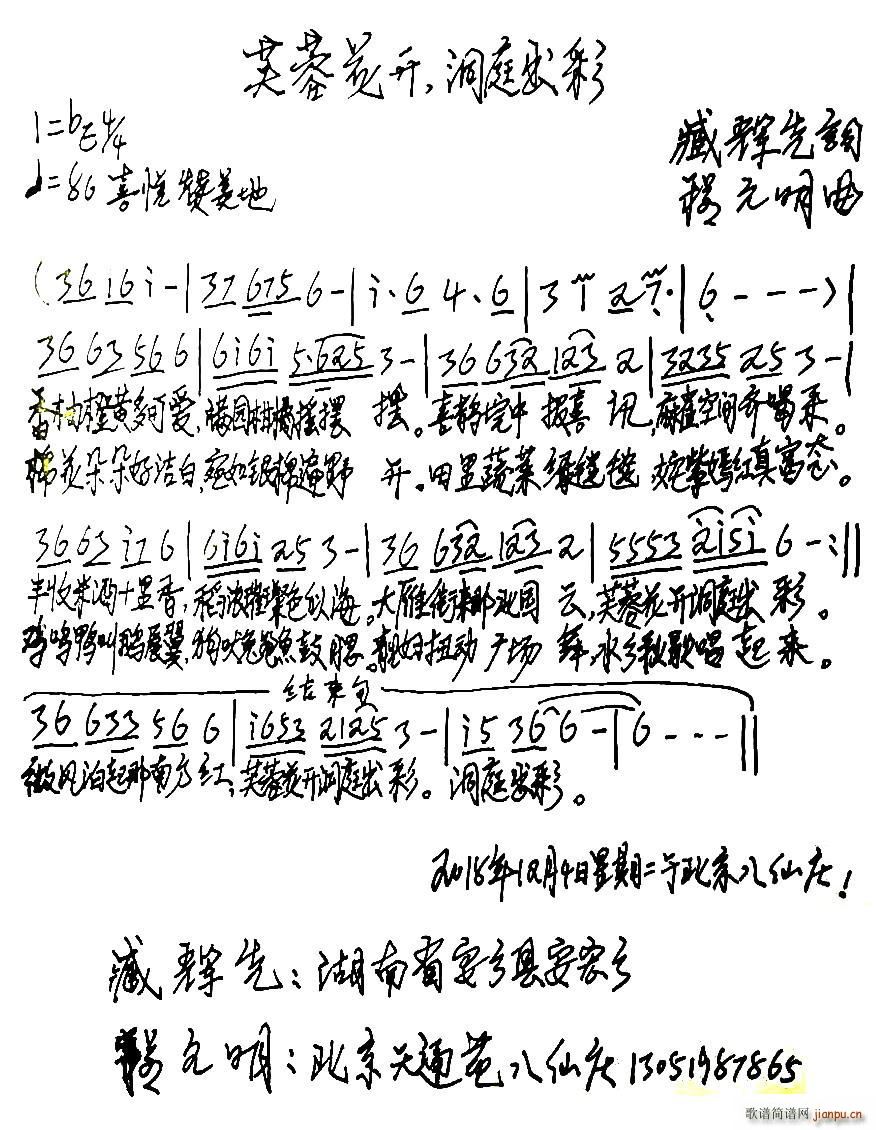 芙蓉花开,洞庭出彩
1=bE 4/4
臧辉先词
♩=86 喜悦赞美地
程元明曲
(36 16 i - | 37 675 6 - | i· 6 4· 6 | 3 1 2 7· | 6 - - - ) |
36 63 56 6 | 6i6i 5·625 3 - | 36 632 123 2 | 3235 25 3 - |
香柚橙黄多可爱,满园柑橘摇摆 摆。喜鹊空中 报喜 讯,麻雀空间齐唱来。
棉花朵朵好洁白,宛如银棉遍野 开。田里蔬菜绿 姹紫嫣红真富态。
36 63 i7 6 | 6i6i 25 3 - | 36 632 123 2 | 5553 2i5i 6 - :||
丰收米酒十里香,稻浓 色似海。大雁衔来那北国 云,芙蓉花开洞庭出 彩。
鸡鸣鸭叫鹅展翼,狗吠兔 鱼鼓腮。 妇扭动广场 舞,水乡秋歌唱起来。
结束句
36 633 56 6 | i653 2125 3 - | i5 36 6 - | 6 - - - ||
微风泊起那南方红,芙蓉花开洞庭出彩。洞庭出彩。
2018年12月4日星期二于北京八仙庄!
臧辉先:湖南省安乡县安宏乡
程元明:北京天通苑八仙庄13051987865
歌谱简谱网 jianpu.cn